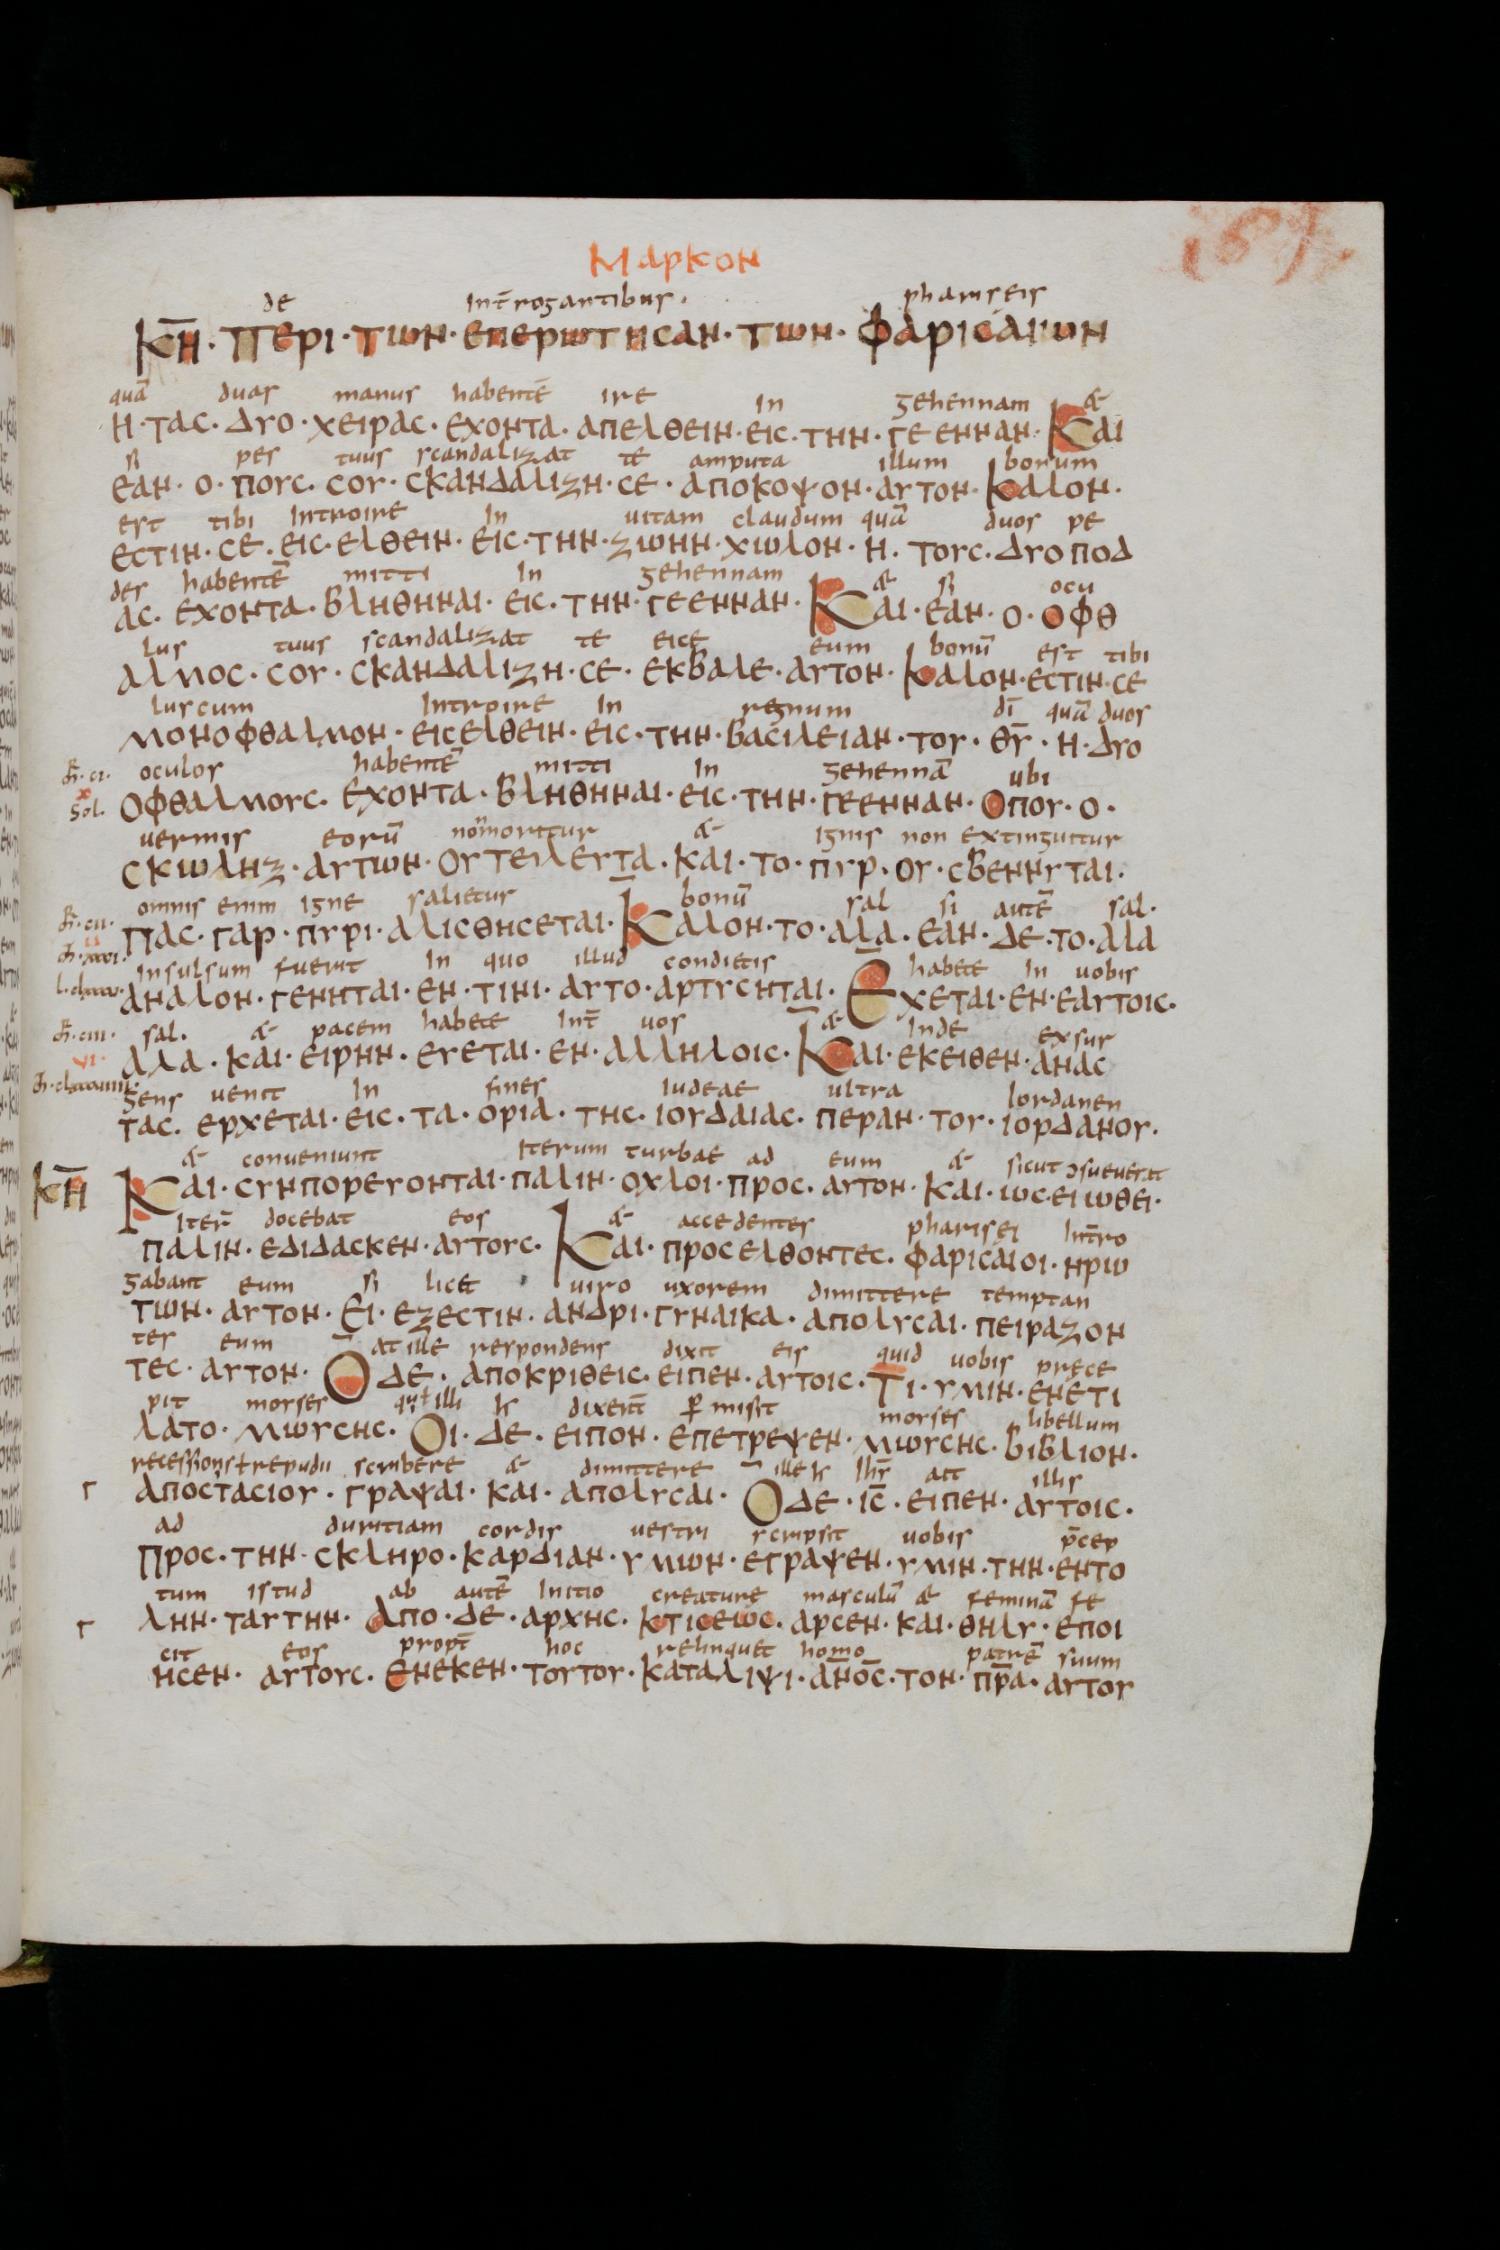 169
Μαρκον
de Int̄rogantibus. phariseis
ΚΗ̄·ΠΕΡΙ·ΤωΝ·ΕΠΕΡωΤΗCΑΝ·ΤωΝ·ΦΑΡΙCΑΙωΝ
quā duas manus habentē ire In gehennam &
Η·ΤΑC·ΔΥΟ·ΧΕΙΡΑC·ΕΧΟΝΤΑ·ΑΠΕΛΘΕΙΝ·ΕΙC·ΤΗΝ·ΓΕΕΝΝΑΝ·ΚΑΙ
si pes tuus scandalizat te amputa illum bonum
ΕΑΝ·Ο·ΠΟΥC·CΟΥ·CΚΑΝΔΑΛΙΖΗ·CΕ·ΑΠΟΚΟΨΟΝ·ΑΥΤΟΝ·ΚΑΛΟΝ·
est tibi Introire In uitam claudum quā duos pe
ΕCΤΙΝ·CΕ·ΕΙC·ΕΛΘΕΙΝ·ΕΙC·ΤΗΝ·ΖωΗΝ·ΧωΛΟΝ·Η·ΤΟΥC·ΔΥΟΠΟΔ
des habentē mitti In gehennam & si ocu
ΑC·ΕΧΟΝΤΑ·ΒΛΗΘΗΝΑΙ·ΕΙC·ΤΗΝ·ΓΕΕΝΝΑΝ·ΚΑΙ·ΕΑΝ·Ο·ΟΦΘ
lus tuus scandalizat te eice eum bonū est tibi
ΑΛΜΟC·CΟΥ·CΚΑΝΔΑΛΙΖΗ·CΕ·ΕΚΒΑΛΕ·ΑΥΤΟΝ·ΚΑΛΟΝ·ΕCΤΙΝ·CΕ
luscum Introire In regnum dī quā duos
ΜΟΝΟΦΘΑΛΜΟΝ·ΕΙCΕΛΘΕΙΝ·ΕΙC·ΤΗΝ·ΒΑCΙΛΕΙΑΝ·ΤΟΥ·ΘῩ·Η·ΔΥΟ
oculos habentē mitti In gehennā ubi
Sol. ΟΦΘΑΛΜΟΥC·ΕΧΟΝΤΑ·ΒΛΗΘΗΝΑΙ·ΕΙC·ΤΗΝ·ΓΕΕΝΝΑΝ·ΟΠΟΥ·Ο·
uermis eorū nōmoritur & ignis non extinguitur
CΚωΛΗΖ·ΑΥΤωΝ·ΟΥΤΕΛΕΥΤΑ·ΚΑΙ·ΤΟ·ΠΥΡ·ΟΥ·CΒΕΝΝΥΤΑΙ·
omnis enim igne salietur bonū sal si autē sal·
ΠΑC·ΓΑΡ·ΠΥΡΙ·ΑΛΙCΘΗCΕΤΑΙ·ΚΑΛΟΝ·ΤΟ·ΑΛΑ·ΕΑΝ·ΔΕ·ΤΟ·ΑΛΑ
Insulsum fuerit In quo illud condietis habete In uobis
ΑΝΑΛΟΝ·ΓΕΝΗΤΑΙ·ΕΝ·ΤΙΝΙ·ΑΥΤΟ·ΑΡΤΥCΗΤΑΙ·ΕΧΕΤΑΙ·ΕΝ·ΕΑΥΤΟΙC·
sal· & pacem habete Int̄ uos & Inde exsur
ΑΛΑ·ΚΑΙ·ΕΙΡΗΝ·ΕΥΕΤΑΙ·ΕΝ·ΑΛΛΗΛΟΙC·ΚΑΙ·ΕΚΕΙΘΕΝ·ΑΝΑC
gens uenit In fines Iudeae ultra Iordanen
ΤΑC·ΕΡΧΕΤΑΙ·ΕΙC·ΤΑ·ΟΡΙΑ·ΤΗC·ΙΟΥΔΑΙΑC·ΠΕΡΑΝ·ΤΟΥ·ΙΟΡΔΑΝΟΥ·
& conueniunt Iterum turbae ad eum & sicut ɔsueuerat
ΚΗ̄ ΚΑΙ·CΥΝΠΟΡΕΥΟΝΤΑΙ·ΠΑΛΙΝ·ΟΧΛΟΙ·ΠΡΟC·ΑΥΤΟΝ·ΚΑΙ·ΙωC·ΕΙωΘΕΙ·
Iter̄ docebat eos & accedentes pharisei Int̄ro
ΠΑΛΙΝ·ΕΔΙΔΑCΚΕΝ·ΑΥΤΟΥC·ΚΑΙ·ΠΡΟCΕΛΘΟΝΤΕC·ΦΑΡΙCΑΙΟΙ·ΗΡω
gabant eum si licet uiro uxorem dimittere temptan
ΤωΝ·ΑΥΤΟΝ·ΕΙ·ΕΖΕCΤΙΝ·ΑΝΔΡΙ·ΓΥΝΑΙΚΑ·ΑΠΟΛΥCΑΙ·ΠΕΙΡΑΖΟΝ
tes eum at ille respondens dixit eis quid uobis prece
ΤΕC·ΑΥΤΟΝ·ΟΔΕ·ΑΠΟΚΡΙΘΕΙC·ΕΙΠΕΝ·ΑΥΤΟΙC·ΤΙ·ΥΜΙΝ·ΕΝΕΤΙ
pit moyses illi dixert̄ ꝑmisit moyses libellum
ΛΑΤΟ·ΜωΥCΗC·ΟΙ·ΔΕ·ΕΙΠΟΝ·ΕΠΕΤΡΕΨΕΝ·ΜωΥCΗC·ΒΙΒΛΙΟΝ·
recessionis ɫ repudii scribere & dimittere ille Ihs̄ ait illis
Γ ΑΠΟCΤΑCΙΟΥ·ΓΡΑΨΑΙ·ΚΑΙ·ΑΠΟΛΥCΑΙ·ΟΔΕ·ΙC̄·ΕΙΠΕΝ·ΑΥΤΟΙC·
ad duritiam cordis uestri scripsit uobis p̄cep
ΠΡΟC·ΤΗΝ·CΚΛΗΡΟ·ΚΑΡΔΙΑΝ·ΥΜωΝ·ΕΓΡΑΨΕΝ·ΥΜΙΝ·ΤΗΝ·ΕΝΤΟ
tum istud ab autē Initio creature masculū & feminā fe
Γ ΛΗΝ·ΤΑΥΤΗΝ·ΑΠΟ·ΔΕ·ΑΡΧΗC·ΚΤΙCΕωC·ΑΡCΕΝ·ΚΑΙ·ΘΗΛΥ·ΕΠΟΙ
cit eos propt̄ hoc relinquet homo patrē suum
ΗCΕΝ·ΑΥΤΟΥC·ΕΝΕΚΕΝ·ΤΟΥΤΟΥ·ΚΑΤΑΛΙΨΙ·ΑΝ̄ΟC·ΤΟΝ·ΠΡ̄Α·ΑΥΤΟΥ